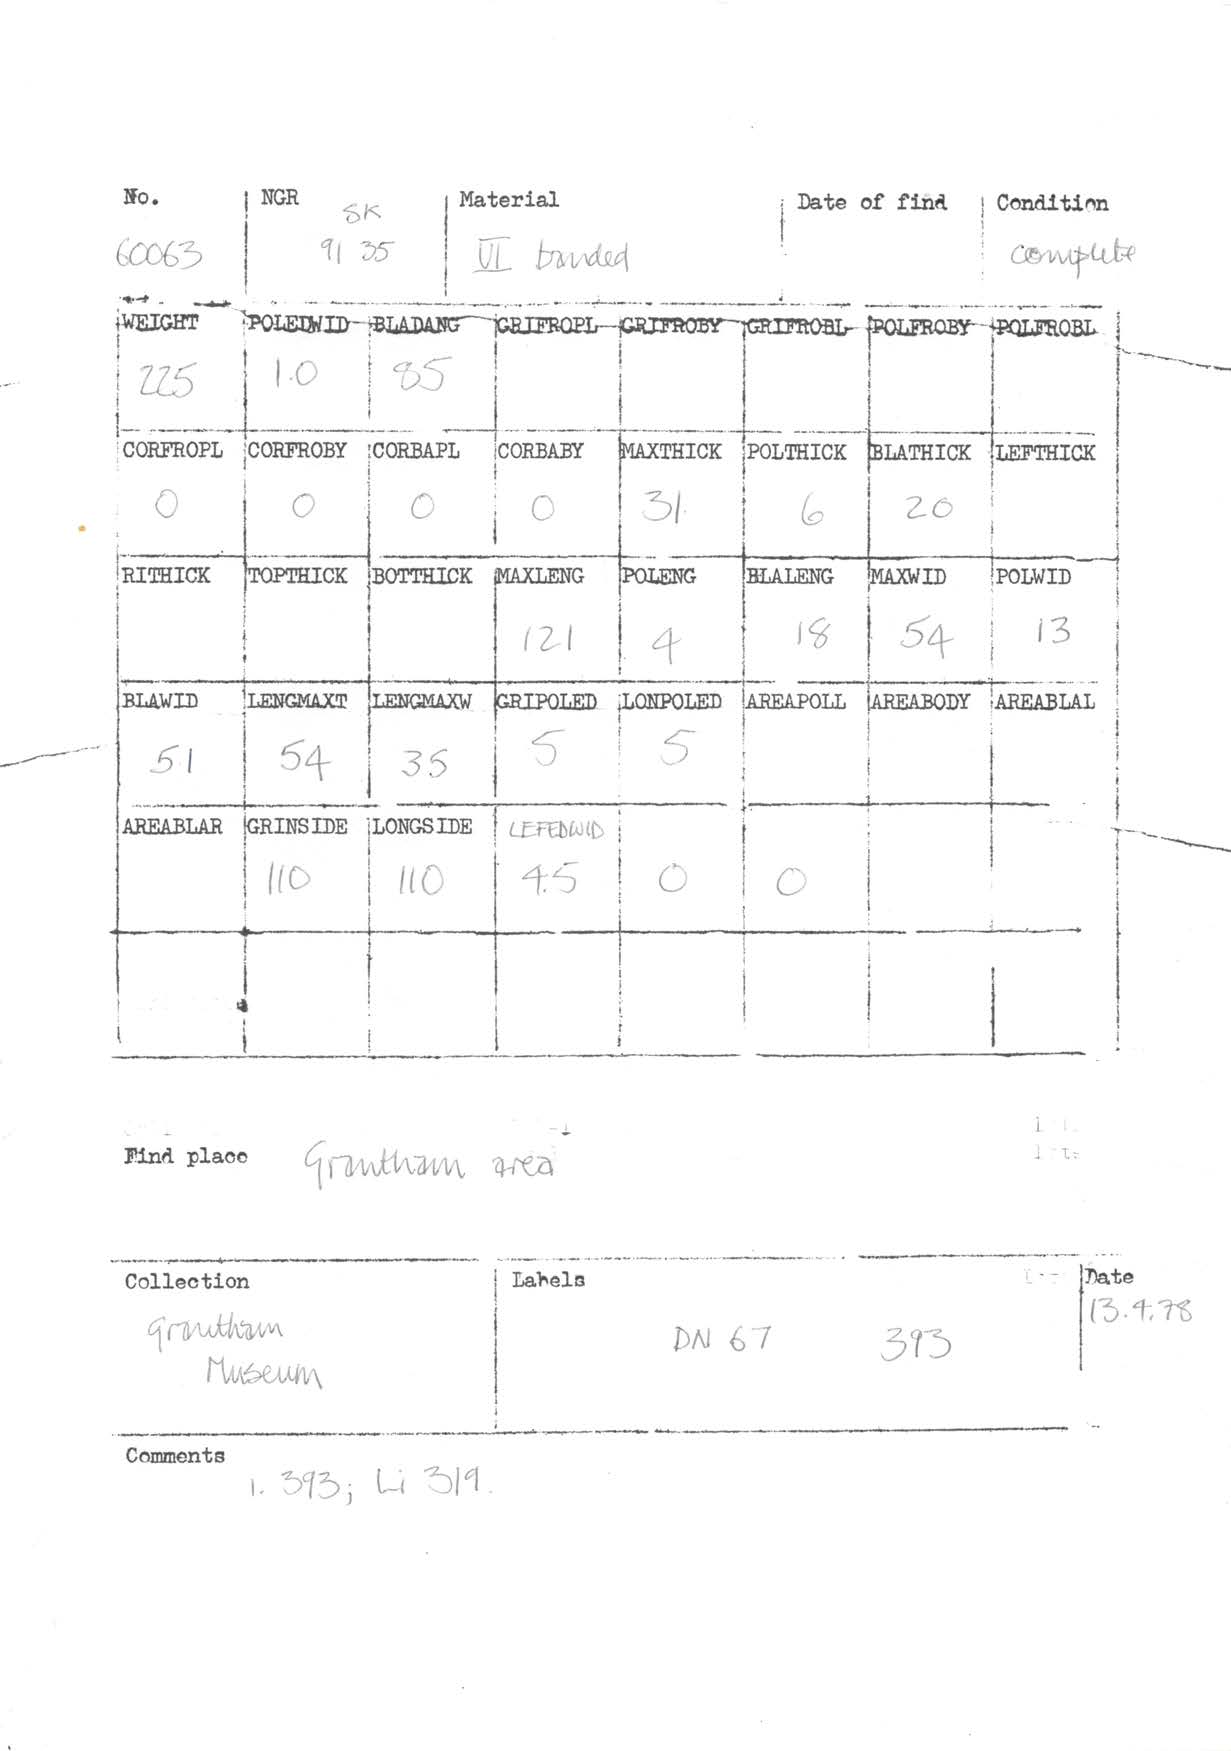 No. NGR Material Date of find Condition
SK
60063 91 35 VI banded complete
WEIGHT POLEDWID BLADANG GRIFROPL GRIFROBY GRIFROBL POLFROBY POLFROBL
225 1.0 85
CORFROPL CORFROBY CORBAPL CORBABY MAXTHICK POLTHICK BLATHICK LEFTHICK
0 0 0 0 31 6 20
RITHICK TOPTHICK BOTTHICK MAXLENG POLENG BLALENG MAXWID POLWID
121 4 18 54 13
BLAWID LENGMAXT LENGMAXW GRIPOLED LONPOLED AREAPOLL AREABODY AREABLAL
51 54 35 5 5
AREABLAR GRINSIDE LONGSIDE LEFEDWID
110 110 4.5 0 0
Find place Grantham area
Collection Labels Date
Grantham DN 67 393 13.4.78
Museum
Comments
1. 393; Li 319.